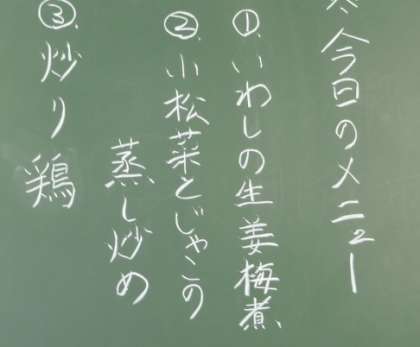 今日のメニュー
①.いわしの生姜梅煮
②.小松菜とじゃこの
蒸し炒め
③.炒り鶏